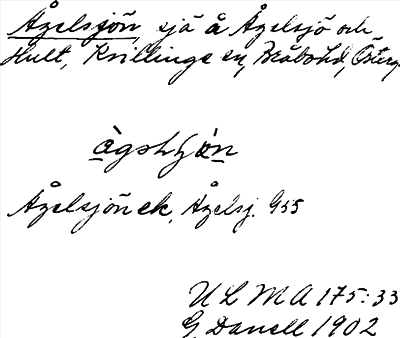 Ågelsjön, sjä å Ågelsjö och
Hult, Kvillinge sn, Bråbo hd, Österg
Ågelsjön ek. Ågelsj. G55
ULMA 175:33
G. Danell 1902